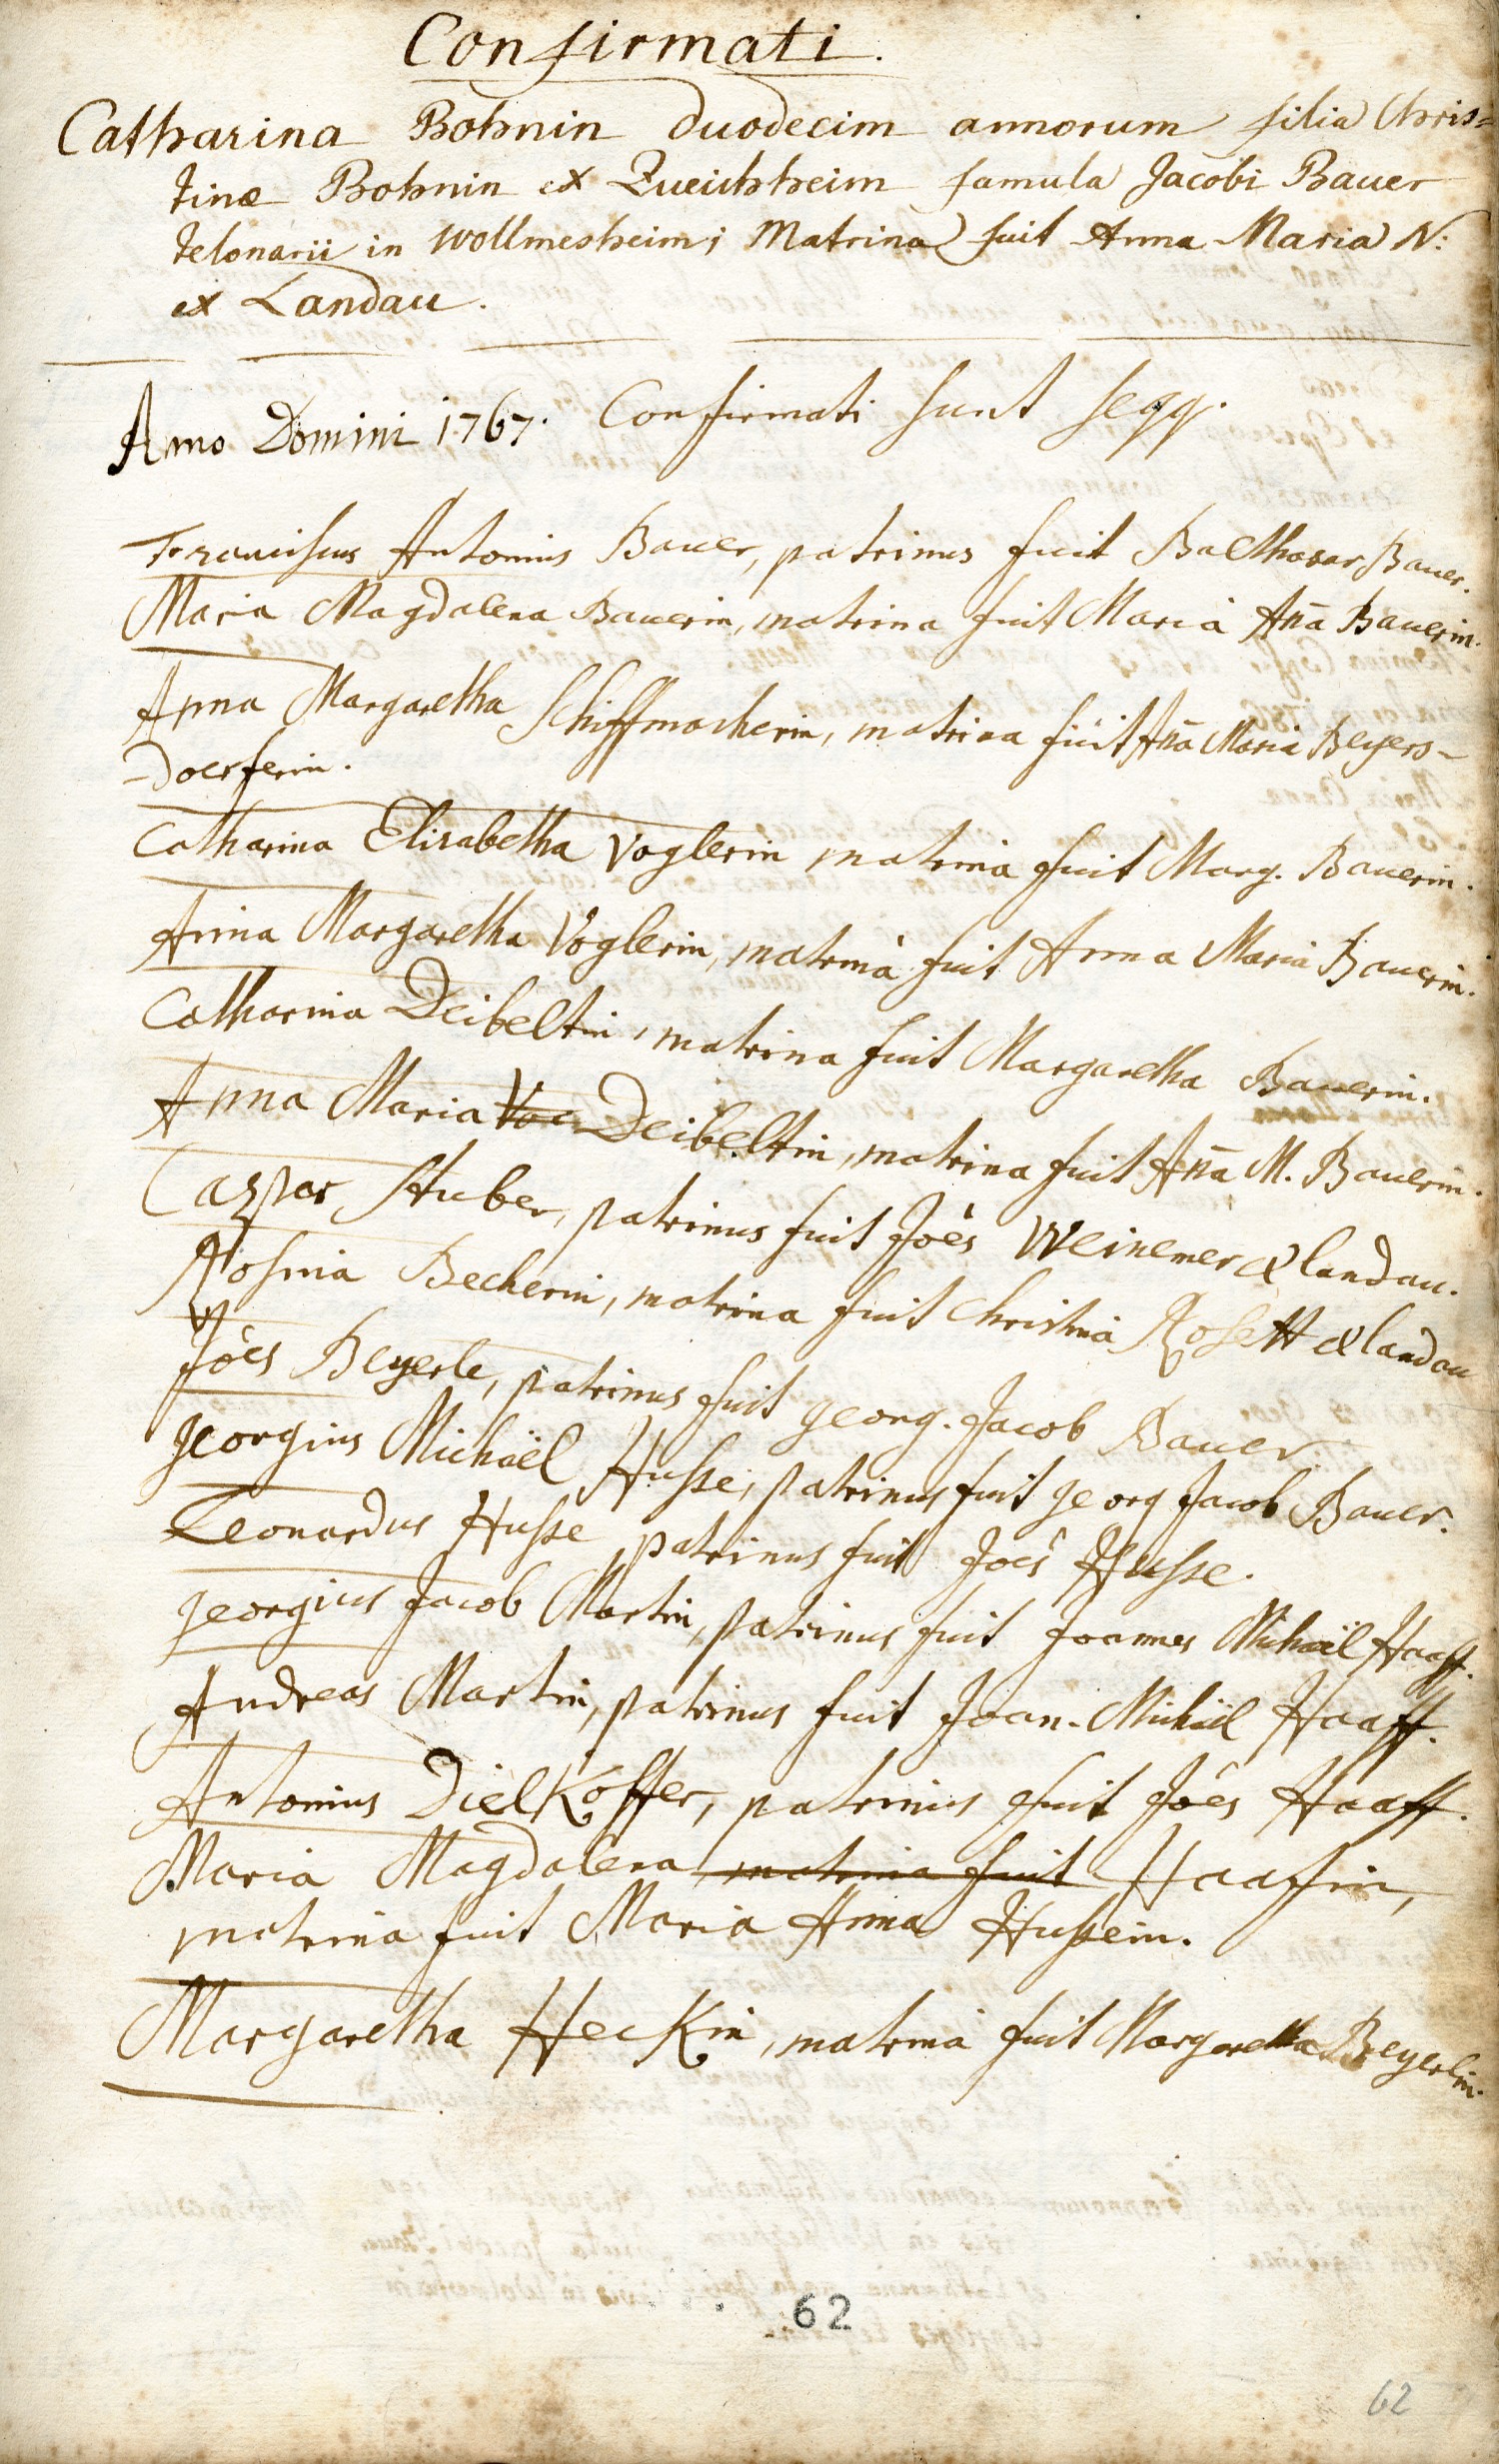 Confirmati.
Catharina Bohnin duodecim annorum filia Chris=
tinæ Bohnin ex Queichheim famula Jacobi Bauer
telonarii in Wollmesheim; Matrina fuit Anna Maria N:
ex Landau.
Anno Domini 1767. Confirmati sunt seqq.
Franciscus Antonius Bauer, patrinus fuit Balthasar Bauer.
Maria Magdalena Bauerin, matrina fuit Maria Aña Bauerin.
Anna Margaretha Schiffmacherin, matrina fuit Aña Maria Beyers-
-doerferin.
Catharina Elisabetha Voglerin matrina fuit Marg. Bauerin.
Anna Margaretha Voglerin, matrina fuit Anna Maria Bauerin.
Catharina Deibeltin, matrina fuit Margaretha Bauerin.
Anna Maria Deibeltin, matrina fuit Aña M. Bauerin.
Caspar Huber, patrinus fuit Joês Weinemer ex landau.
Rosina Becherin, matrina fuit Christina Rosett ex landau
Joês Beyerle, patrinus fuit georg. Jacob Bauer
georgius Michaël Husse, patrinus fuit georg Jacob Bauer.
Leonardus Husse patrinus fuit Joês Husse.
georgius Jacob Martin, patrinus fuit Joannes Michaël Haaff.
Andreas Martin, patrinus fuit Joan. Michaël Haaff.
Antonius Dielkoffer, patrinus fuit Joês Haaff.
Maria Magdalena matrina fuit Haafin,
matrina fuit Maria Anna Hussein.
Margaretha Heckin, matrina fuit Margaretha Beyerlin.
62
62